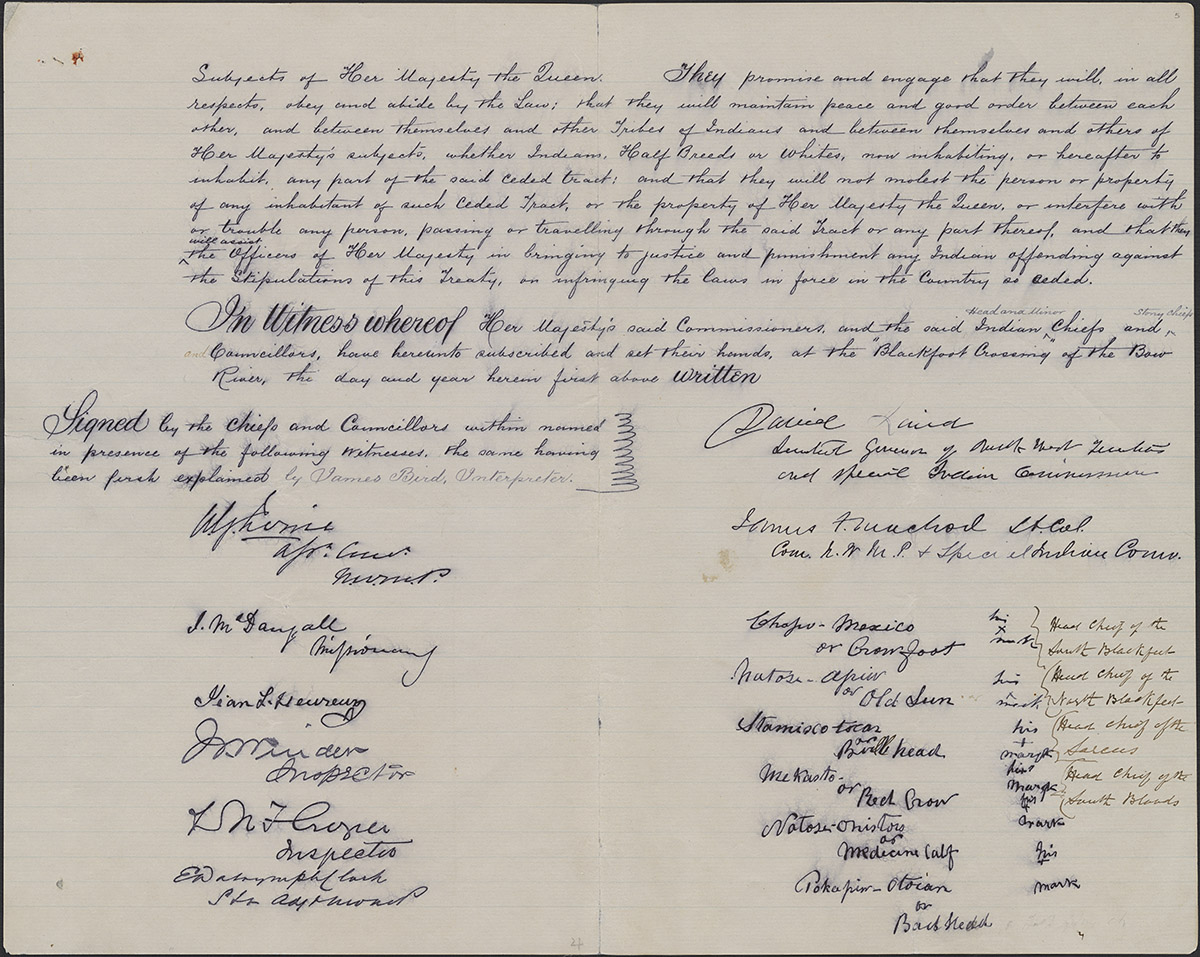 Subjects of Her Majesty the Queen. They promise and engage that they will, in all
respects, obey and abide by the Law; that they will maintain peace and good order between each
other, and between themselves and other Tribes of Indians and between themselves and others of
Her Majesty's subjects, whether Indians, Half Breeds or Whites, now inhabiting, or hereafter to
inhabit, any part of the said ceded tract; and that they will not molest the person or property
of any inhabitant of such Ceded Tract, or the property of Her Majesty the Queen, or interfere with
or trouble any person, passing or travelling through the said Tract or any part thereof, and that they
will assist
the Officers of Her Majesty in bringing to justice and punishment any Indian offending against
the Stipulations of this Treaty, or infringing the Laws in force in the Country so ceded.
Head and Minor Stony Chiefs
In Witness whereof Her Majesty's said Commissioners, and the said Indian Chiefs and
and Councillors, have hereunto subscribed and set their hands, at the "Blackfoot Crossing" of the Bow
River, the day and year herein first above written
Signed by the Chiefs and Councillors within named
in presence of the following witnesses, the same having
been first explained by James Bird, Interpreter.
David Laird
and Special Indian Commissioner
James F. Macleod Lt. Col.
Com. N. W. M. P. & Special Indian Comr.
J. McDougall
Missionary
Jean L'Heureux
Inspector
Inspector
Chapo-Mexico his
or Crowfoot x mark Head Chief of the
South Blackfeet
Natose-apiw his Head Chief of the
or Old Sun mark North Blackfeet
Stamiscotocar his Head Chief of the
or Bull head + mark Sarcees
Mekasto his Head Chief of the
or Red Crow mark South Bloods
Natose-onistors his
or mark
Medicine Calf his
Pokapiw-Otoian mark
or
Bad Head
4
5